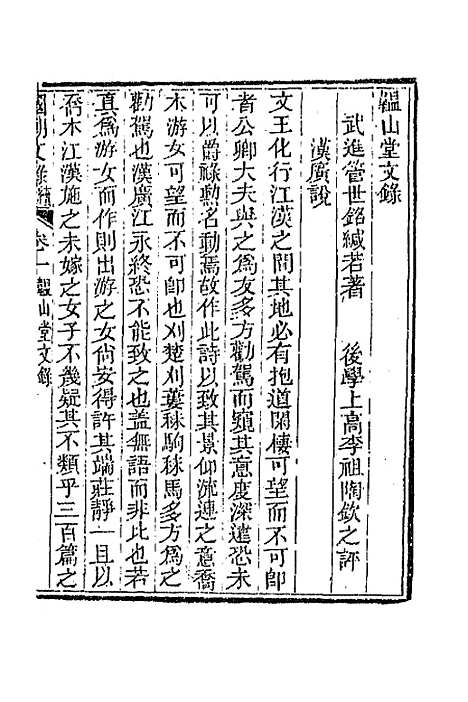 韞山堂文錄
武進管世銘緘若著　後學上高李祖陶欽之評
漢廣說
文王化行江漢之間其地必有抱道閑棲可望而不可即
者公卿大夫與之為友多方勸駕而窺其意度深遠恐未
可以爵祿勳名動焉故作此詩以致其景仰流連之意喬
木游女可望而不可即也刈楚刈蔞秣駒秣馬多方為之
勸駕也漢廣江永終恐不能致之也蓋無語而非比也若
真為游女而作則出游之女尙安得許其端莊靜一且以
喬木江漢施之未嫁之女子不幾疑其不類乎三百篇之
國朝文錄續編 卷一 韞山堂文錄